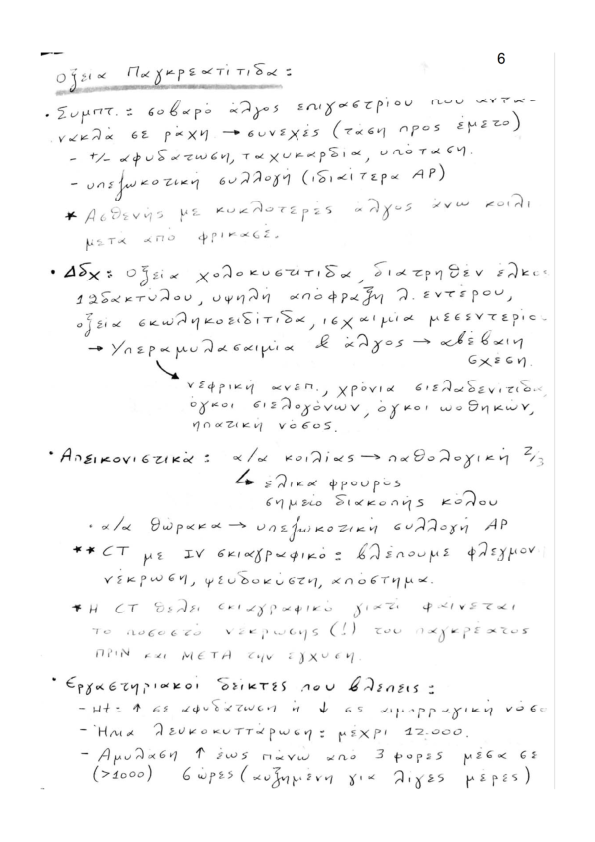 6
Οξεία Παγκρεατίτιδα:
• Συμπτ.: σοβαρό άλγος επιγαστρίου που αντα-
νακλά σε ράχη → συνεχές (τάση προς έμετο)
- +/- αφυδάτωση, ταχυκαρδία, υπόταση.
- υπεζωκοτική συλλογή (ιδιαίτερα ΑΡ)
* Ασθενής με κυκλοτερές άλγος άνω κοιλι
μετά από φρικασέ.
• Δδχ: Οξεία χολοκυστιτίδα, διατρηθέν έλκο
12δακτύλου, υψηλή απόφραξη λ. εντέρου,
οξεία σκωληκοειδίτιδα, ισχαιμία μεσεντερίο
→ Υπεραμυλασαιμία & άλγος → αβέβαιη
σχέση.
νεφρική ανεπ., χρόνια σιελαδενίτιδα,
όγκοι σιελογόνων, όγκοι ωοθηκών,
ηπατική νόσος.
• Απεικονιστικά: α/α κοιλίας → παθολογική 2/3
↳ έλικα φρουρός
σημείο διακοπής κόλου
• α/α θώρακα → υπεζωκοτική συλλογή ΑΡ
** CT με IV σκιαγραφικό: βλέπουμε φλεγμον
νέκρωση, ψευδοκύστη, απόστημα.
* Η CT θέλει σκιαγραφικό γιατί φαίνεται
το ποσοστό νέκρωσης (!) του παγκρέατος
ΠΡΙΝ και ΜΕΤΑ την έγχυση.
• Εργαστηριακοί δείκτες που βλέπεις:
- Ht: ↑ σε αφυδάτωση ή ↓ σε αιμορραγική νόσο
- Ήπια λευκοκυττάρωση: μέχρι 12.000.
- Αμυλάση ↑ έως πάνω από 3 φορές μέσα σε
(>1000) 6 ώρες (αυξημένη για λίγες μέρες)